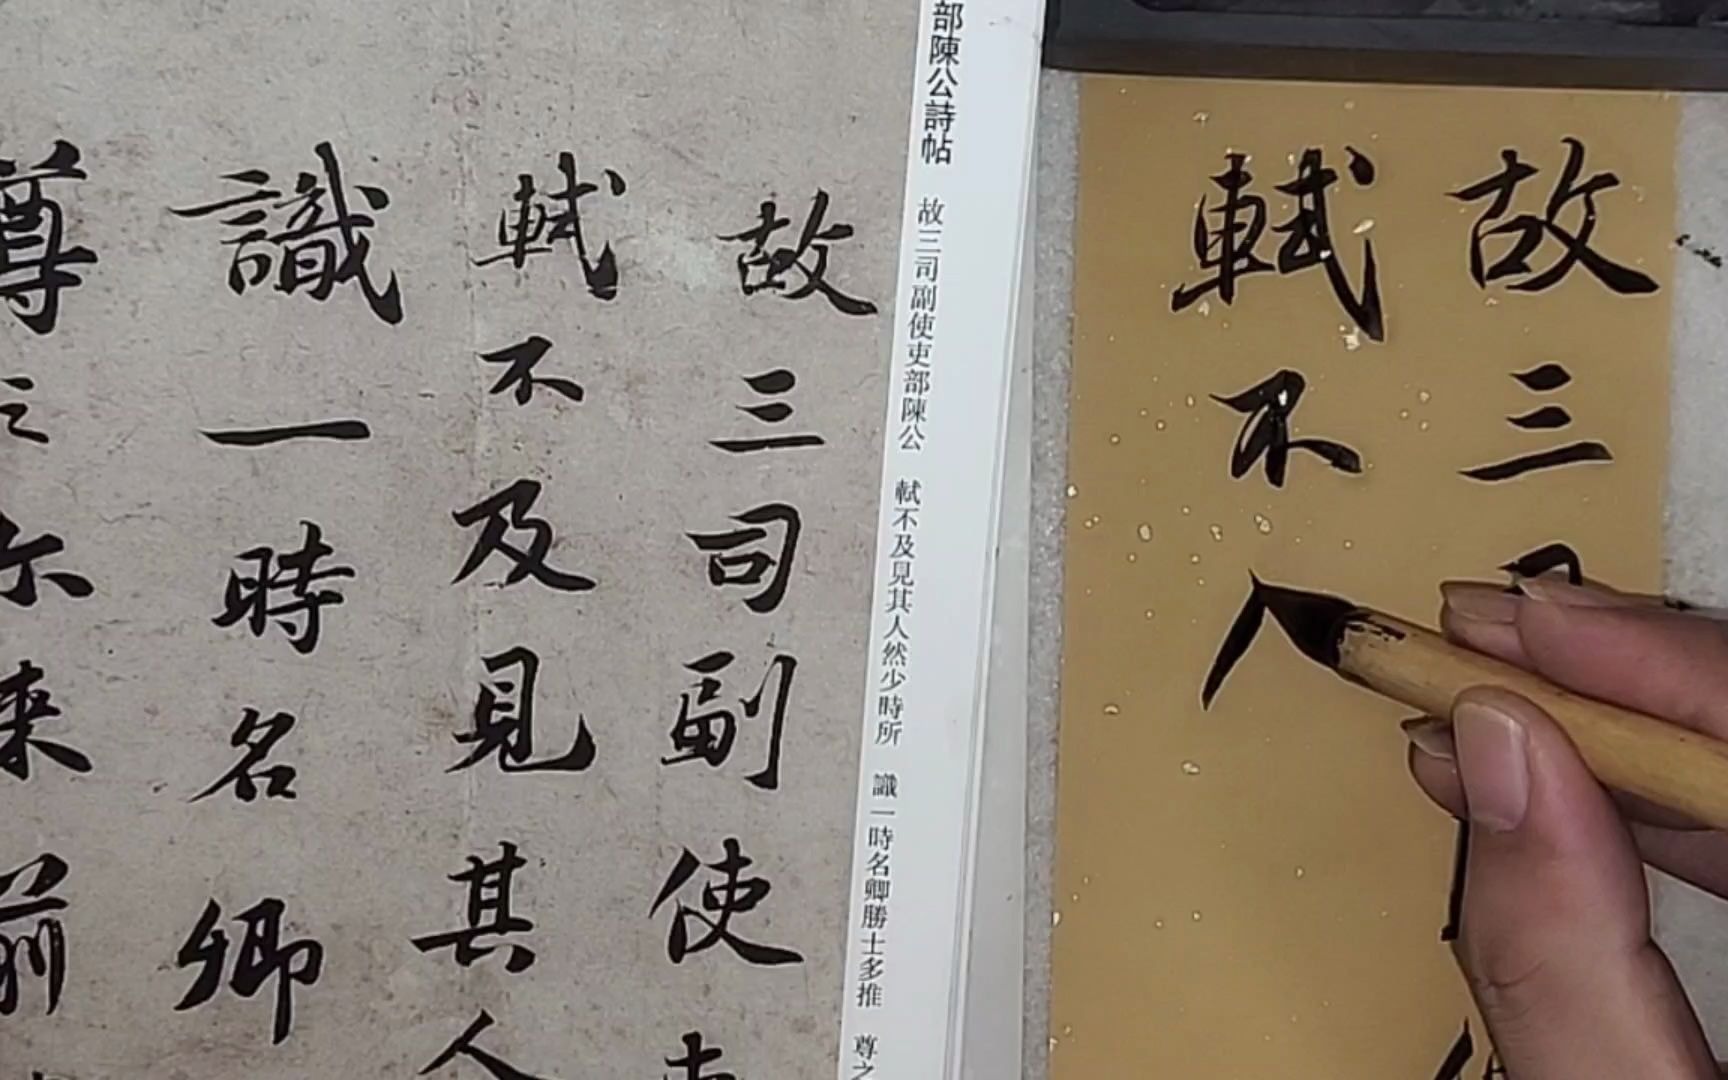 部陳公詩帖 故三司副使吏部陳公 軾不及見其人然少時所 識一時名卿勝士多推 尊之
故三司副使
軾不及見其人
識一時名卿
尊之尔来前
故三
軾不